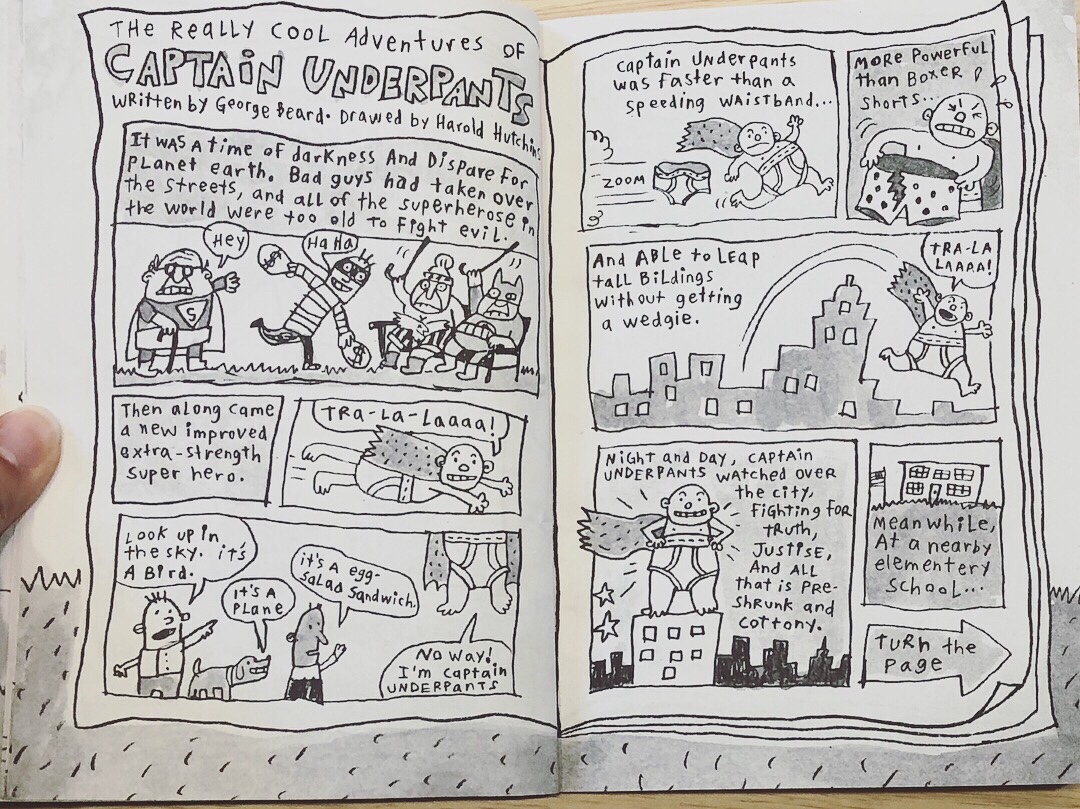 THE ReALLy COOL AdVentures OF
CAPTAIN UNDERPANTS
Written by George Beard. Drawed by Harold Hutchins
It was a time of darkness And Dispare for
Planet earth. Bad guys had taken over
the streets, and all of the superherose in
the world were too old to fight evil.
Hey
HaHa
S
$
$
Then along came
a new improved
extra-strength
super hero.
TRA-LA-Laaaa!
Look up in
the sky. it's
A Bird.
It's A
PLane
it's A egg-
Salad Sandwich.
No way!
I'm Captain
UNDERPANTS
Captain Underpants
was faster than a
speeding WAISTBAND...
ZOOM
MORE Powerful
than Boxer
Shorts...
And ABLe to LEAP
tall BiLdings
without getting
a wedgie.
TRA-LA
LAAAA!
Night and Day, CAPtAin
UNDERPANTS watched over
the city,
fighting for
truth,
Justise,
And ALL
that is Pre-
shrunk and
cottony.
Meanwhile,
At a nearby
elementery
School...
Turn the
Page